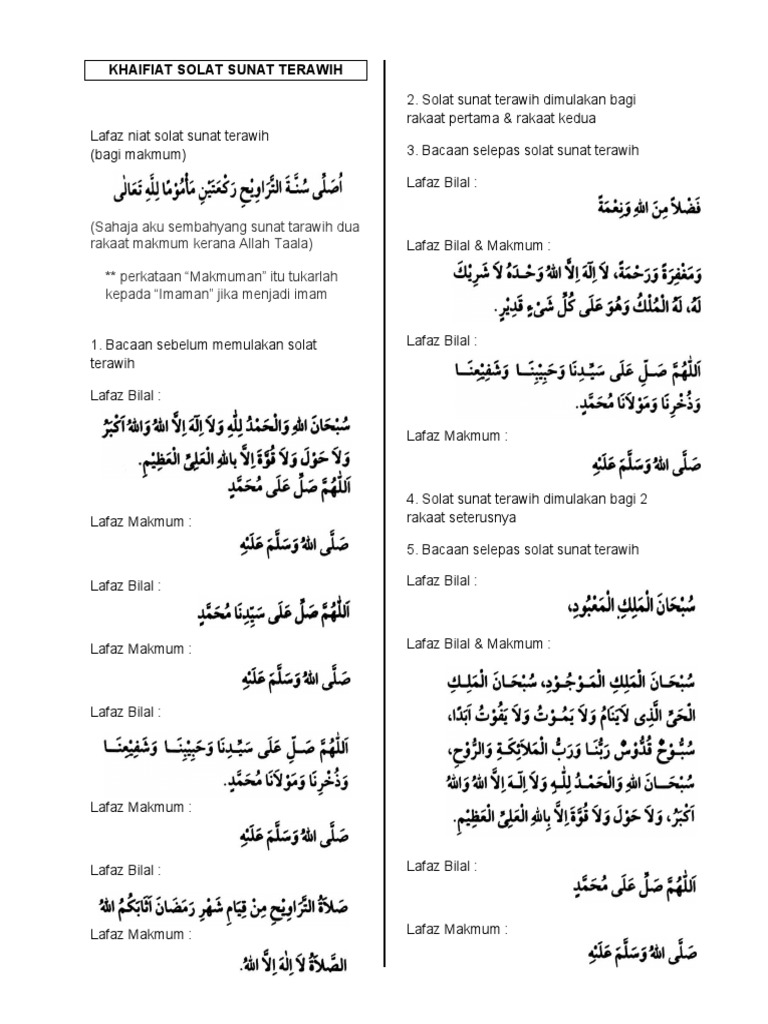 KHAIFIAT SOLAT SUNAT TERAWIH
Lafaz niat solat sunat terawih
(bagi makmum)
اُصَلِّى سُنَّةَ التَّرَاوِيْحِ رَكْعَتَيْنِ مَأْمُوْمًا لِلَّهِ تَعَالٰى
(Sahaja aku sembahyang sunat tarawih dua
rakaat makmum kerana Allah Taala)
** perkataan “Makmuman” itu tukarlah
kepada “Imaman” jika menjadi imam
1. Bacaan sebelum memulakan solat
terawih
Lafaz Bilal :
سُبْحَانَ اللهِ وَالْحَمْدُ لِلّٰهِ وَلاَ اِلٰهَ اِلاَّ اللهُ وَاللهُ اَكْبَرُ
وَلاَ حَوْلَ وَلاَ قُوَّةَ اِلاَّ بِاللهِ الْعَلِيِّ الْعَظِيْمِ.
اَللّٰهُمَّ صَلِّ عَلَى مُحَمَّدٍ
Lafaz Makmum :
صَلَّى اللهُ وَسَلَّمَ عَلَيْهِ
Lafaz Bilal :
اَللّٰهُمَّ صَلِّ عَلَى سَيِّدِنَا مُحَمَّدٍ
Lafaz Makmum :
صَلَّى اللهُ وَسَلَّمَ عَلَيْهِ
Lafaz Bilal :
اَللّٰهُمَّ صَلِّ عَلَى سَيِّدِنَا وَحَبِيْبِنَا وَشَفِيْعِنَا
وَذُخْرِنَا وَمَوْلاَنَا مُحَمَّدٍ.
Lafaz Makmum :
صَلَّى اللهُ وَسَلَّمَ عَلَيْهِ
Lafaz Bilal :
صَلاَةُ التَّرَاوِيْحِ مِنْ قِيَامِ شَهْرِ رَمَضَانَ اَثَابَكُمُ اللهُ
Lafaz Makmum :
الصَّلاَةُ لاَ اِلٰهَ اِلاَّ اللهُ.
2. Solat sunat terawih dimulakan bagi
rakaat pertama & rakaat kedua
3. Bacaan selepas solat sunat terawih
Lafaz Bilal :
فَضْلاً مِنَ اللهِ وَنِعْمَةً
Lafaz Bilal & Makmum :
وَمَغْفِرَةً وَرَحْمَةً، لاَ اِلٰهَ اِلاَّ اللهُ وَحْدَهُ لاَ شَرِيْكَ
لَهُ، لَهُ الْمُلْكُ وَهُوَ عَلَى كُلِّ شَىْءٍ قَدِيْرٍ.
Lafaz Bilal :
اَللّٰهُمَّ صَلِّ عَلَى سَيِّدِنَا وَحَبِيْبِنَا وَشَفِيْعِنَا
وَذُخْرِنَا وَمَوْلاَنَا مُحَمَّدٍ.
Lafaz Makmum :
صَلَّى اللهُ وَسَلَّمَ عَلَيْهِ
4. Solat sunat terawih dimulakan bagi 2
rakaat seterusnya
5. Bacaan selepas solat sunat terawih
Lafaz Bilal :
سُبْحَانَ الْمَلِكِ الْمَعْبُودِ،
Lafaz Bilal & Makmum :
سُبْحَانَ الْمَلِكِ الْمَوْجُوْدِ، سُبْحَانَ الْمَلِكِ
الْحَيِّ الَّذِى لاَيَنَامُ وَلاَ يَمُوْتُ وَلاَ يَفُوْتُ اَبَدًا،
سُبُّوْحٌ قُدُّوْسٌ رَبُّنَا وَرَبُّ الْمَلاَئِكَةِ وَالرُّوْحِ،
سُبْحَانَ اللهِ وَالْحَمْدُ لِلّٰهِ وَلاَ اِلٰهَ اِلاَّ اللهُ وَاللهُ
اَكْبَرُ، وَلاَ حَوْلَ وَلاَ قُوَّةَ اِلاَّ بِاللهِ الْعَلِيِّ الْعَظِيْمِ.
Lafaz Bilal :
اَللّٰهُمَّ صَلِّ عَلَى مُحَمَّدٍ
Lafaz Makmum :
صَلَّى اللهُ وَسَلَّمَ عَلَيْهِ